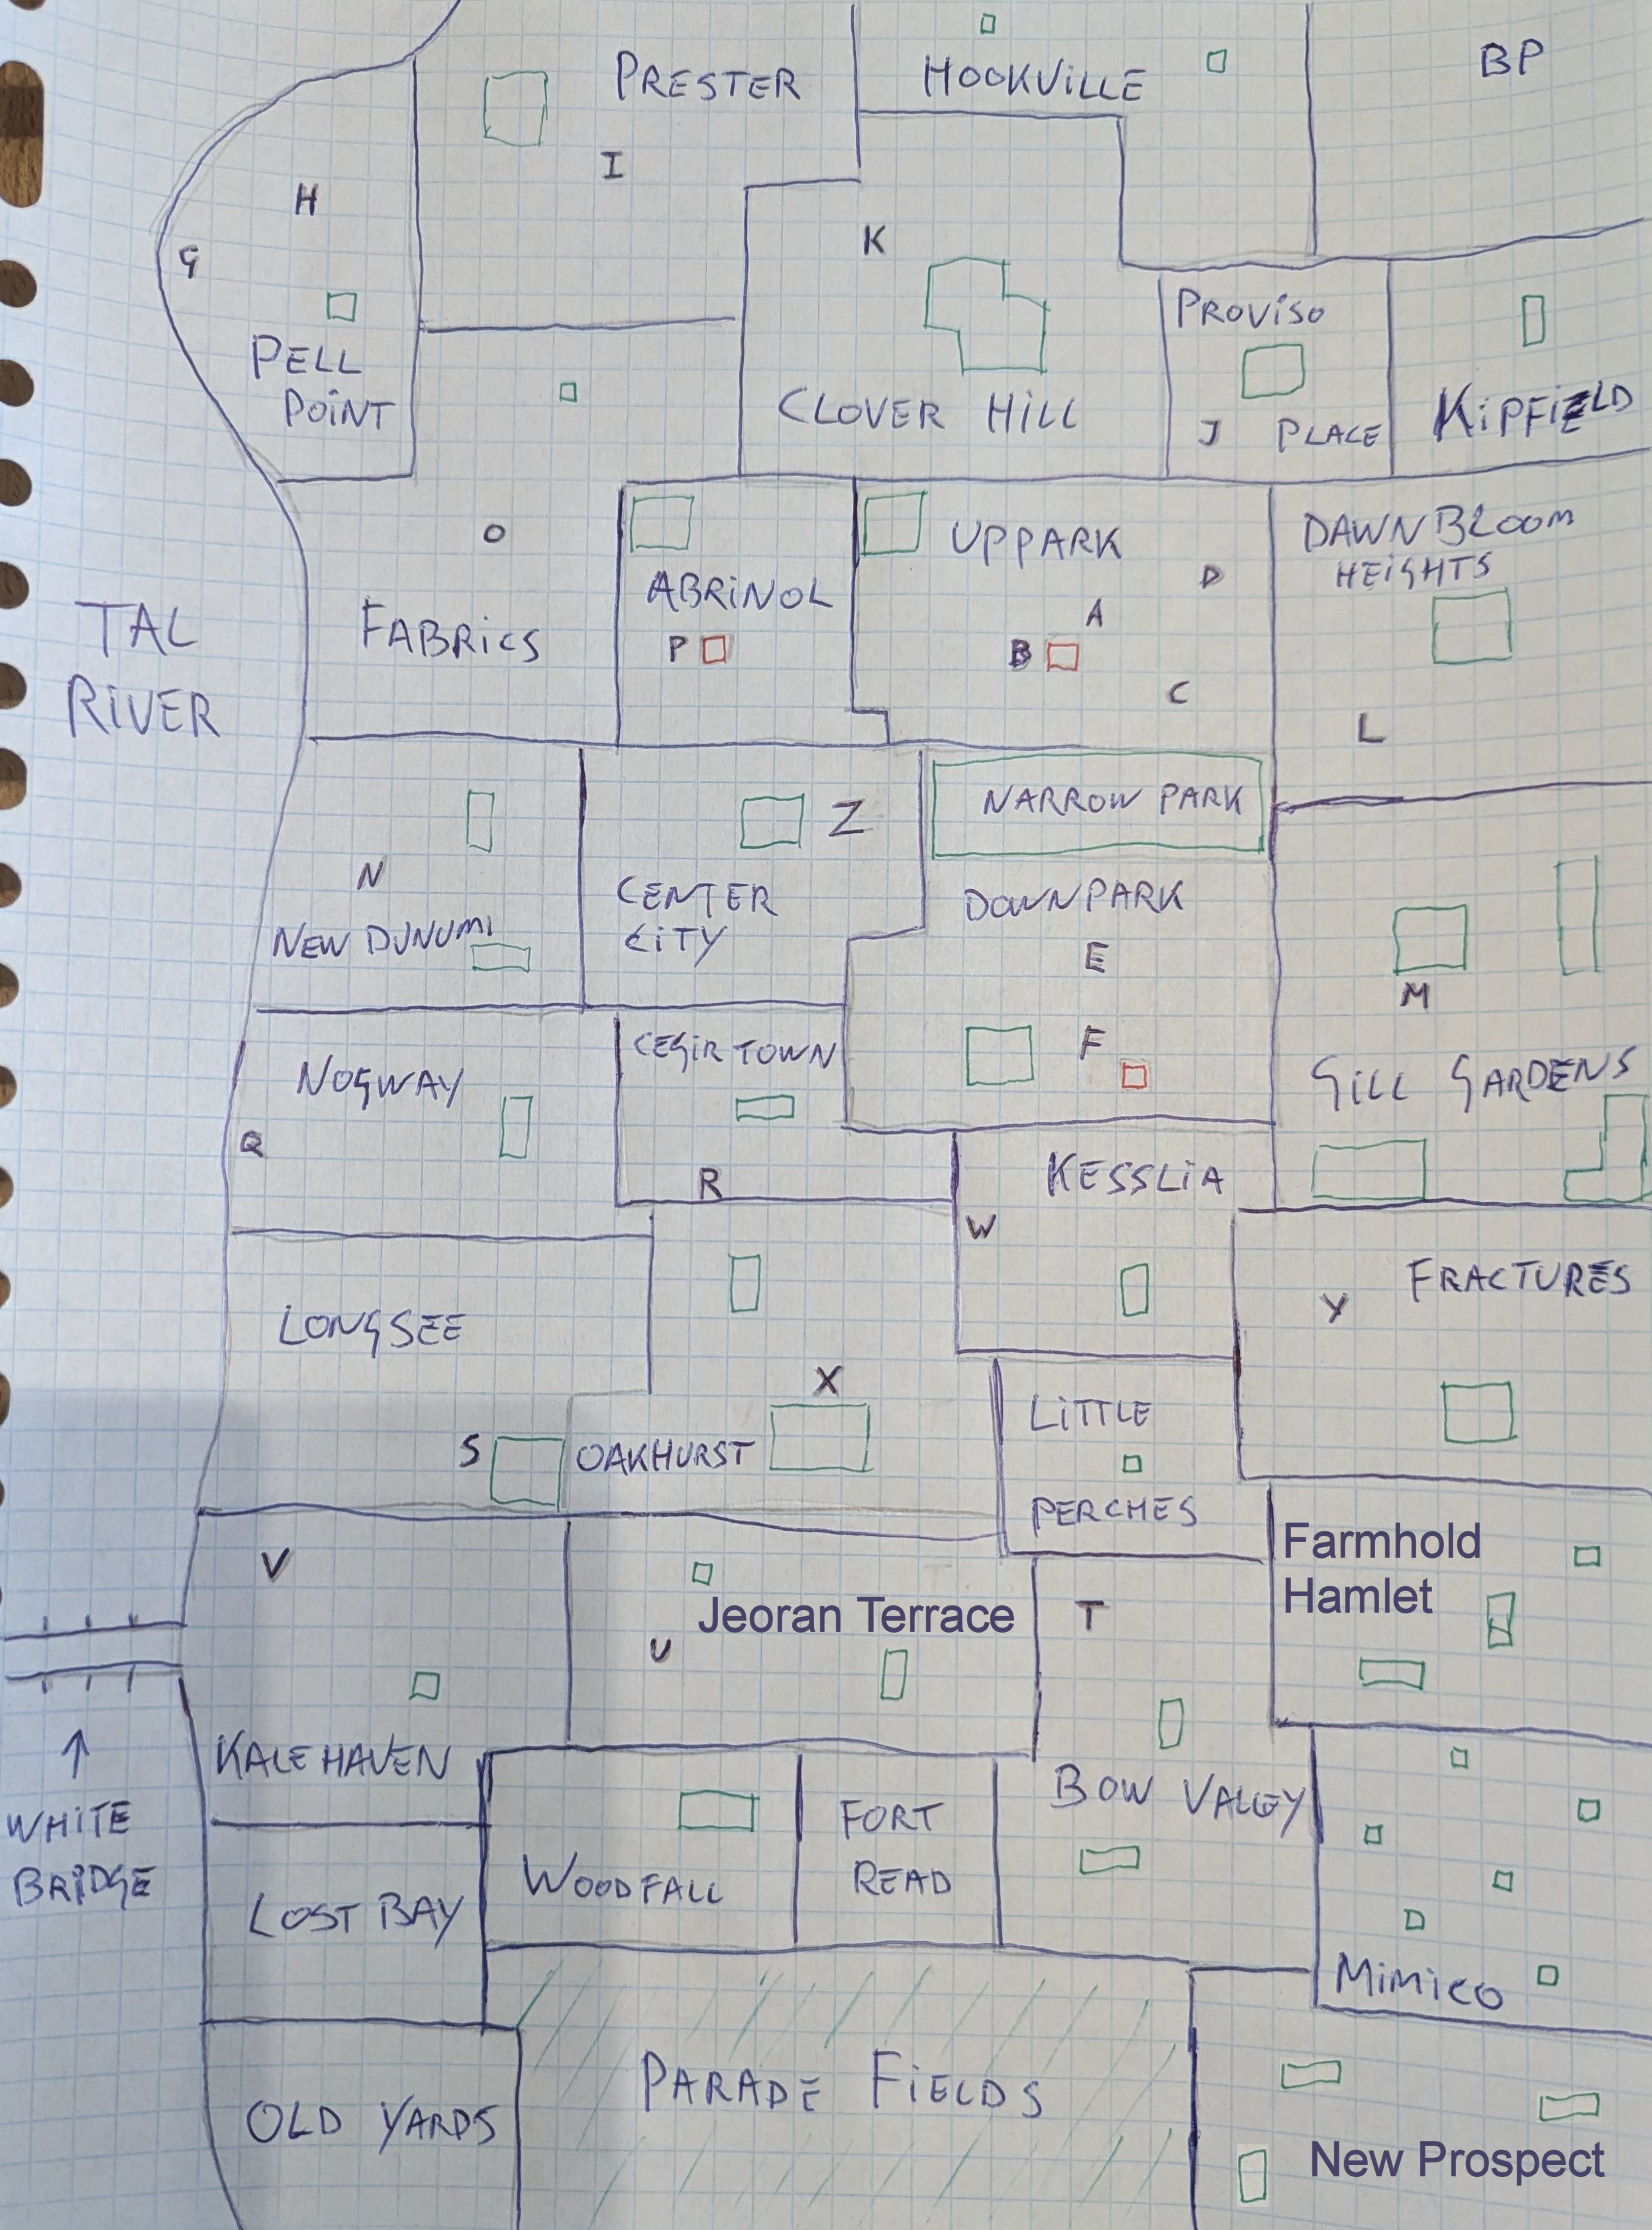 PRESTER
HOOKVILLE
BP
I
H
K
G
PROVISO
PELL
POINT
CLOVER HILL
J PLACE
KIPFIELD
O
UPPARK
DAWNBLOOM
HEIGHTS
D
ABRINOL
A
TAL
RIVER
FABRICS
P
B
C
L
Z
NARROW PARK
N
CENTER
CITY
DOWNPARK
NEW DUNUMI
E
M
CEGIRTOWN
F
NOGWAY
GILL GARDENS
Q
R
KESSLIA
W
FRACTURES
Y
LONGSEE
X
LITTLE
PERCHES
S
OAKHURST
V
Farmhold
Hamlet
Jeoran Terrace
U
T
KALEHAVEN
WHITE
BRIDGE
BOW VALLEY
FORT
READ
WOODFALL
LOST BAY
MIMICO
PARADE FIELDS
OLD YARDS
New Prospect